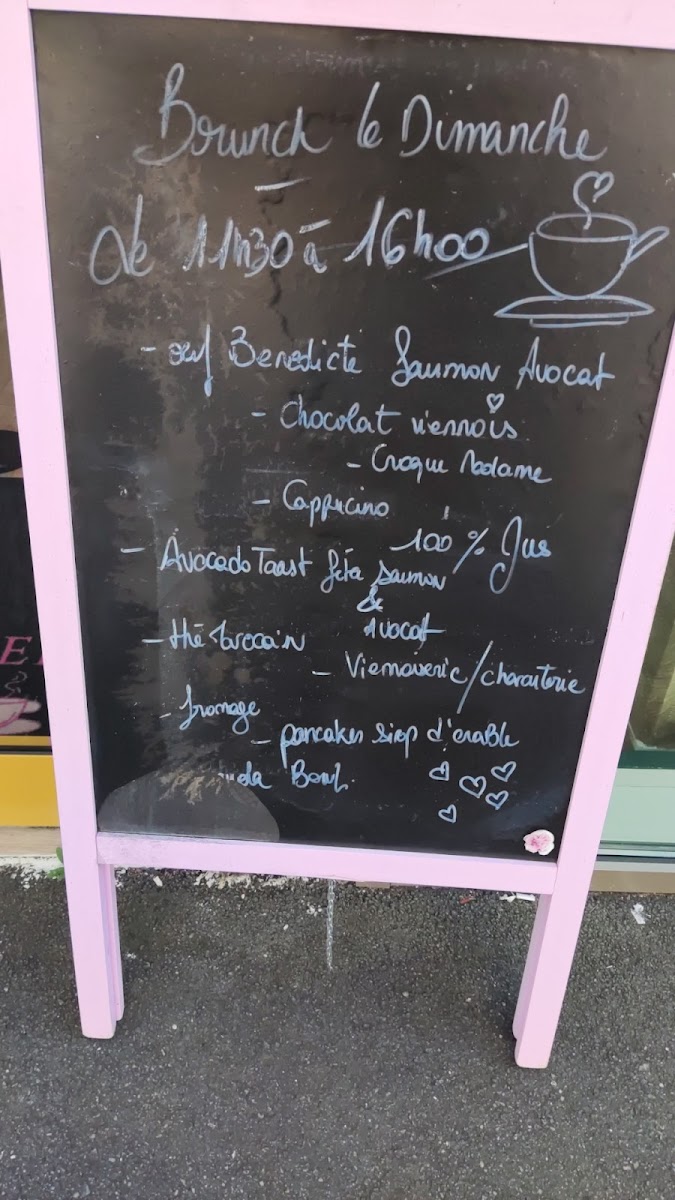 Brunch le Dimanche
De 11h30 à 16h00
- oeuf Benedicte Saumon Avocat
- Chocolat viennois
- Croque Madame
- Cappucino
100 % Jus
- Avocado Toast féta saumon
&
Avocat
- thé Marocain
- Viennoiserie / charcuterie
- fromage
- pancakes sirop d'érable
Bowl.